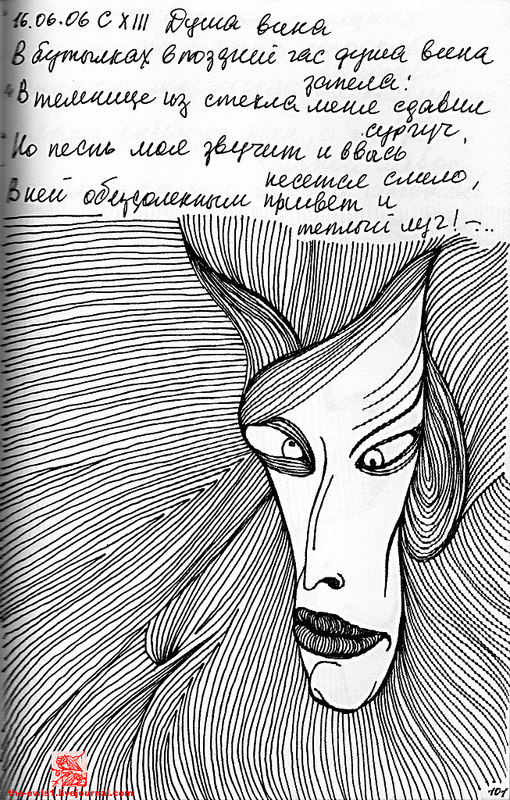 16.06.06 С XIII Душа вина
В бутылках в поздний час душа вина
запела:
В темнице из стекла меня сдавил
сургуч,
Но песнь моя звучит и ввысь
несется смело,
В ней обездоленным привет и
теплый луч! –...
101